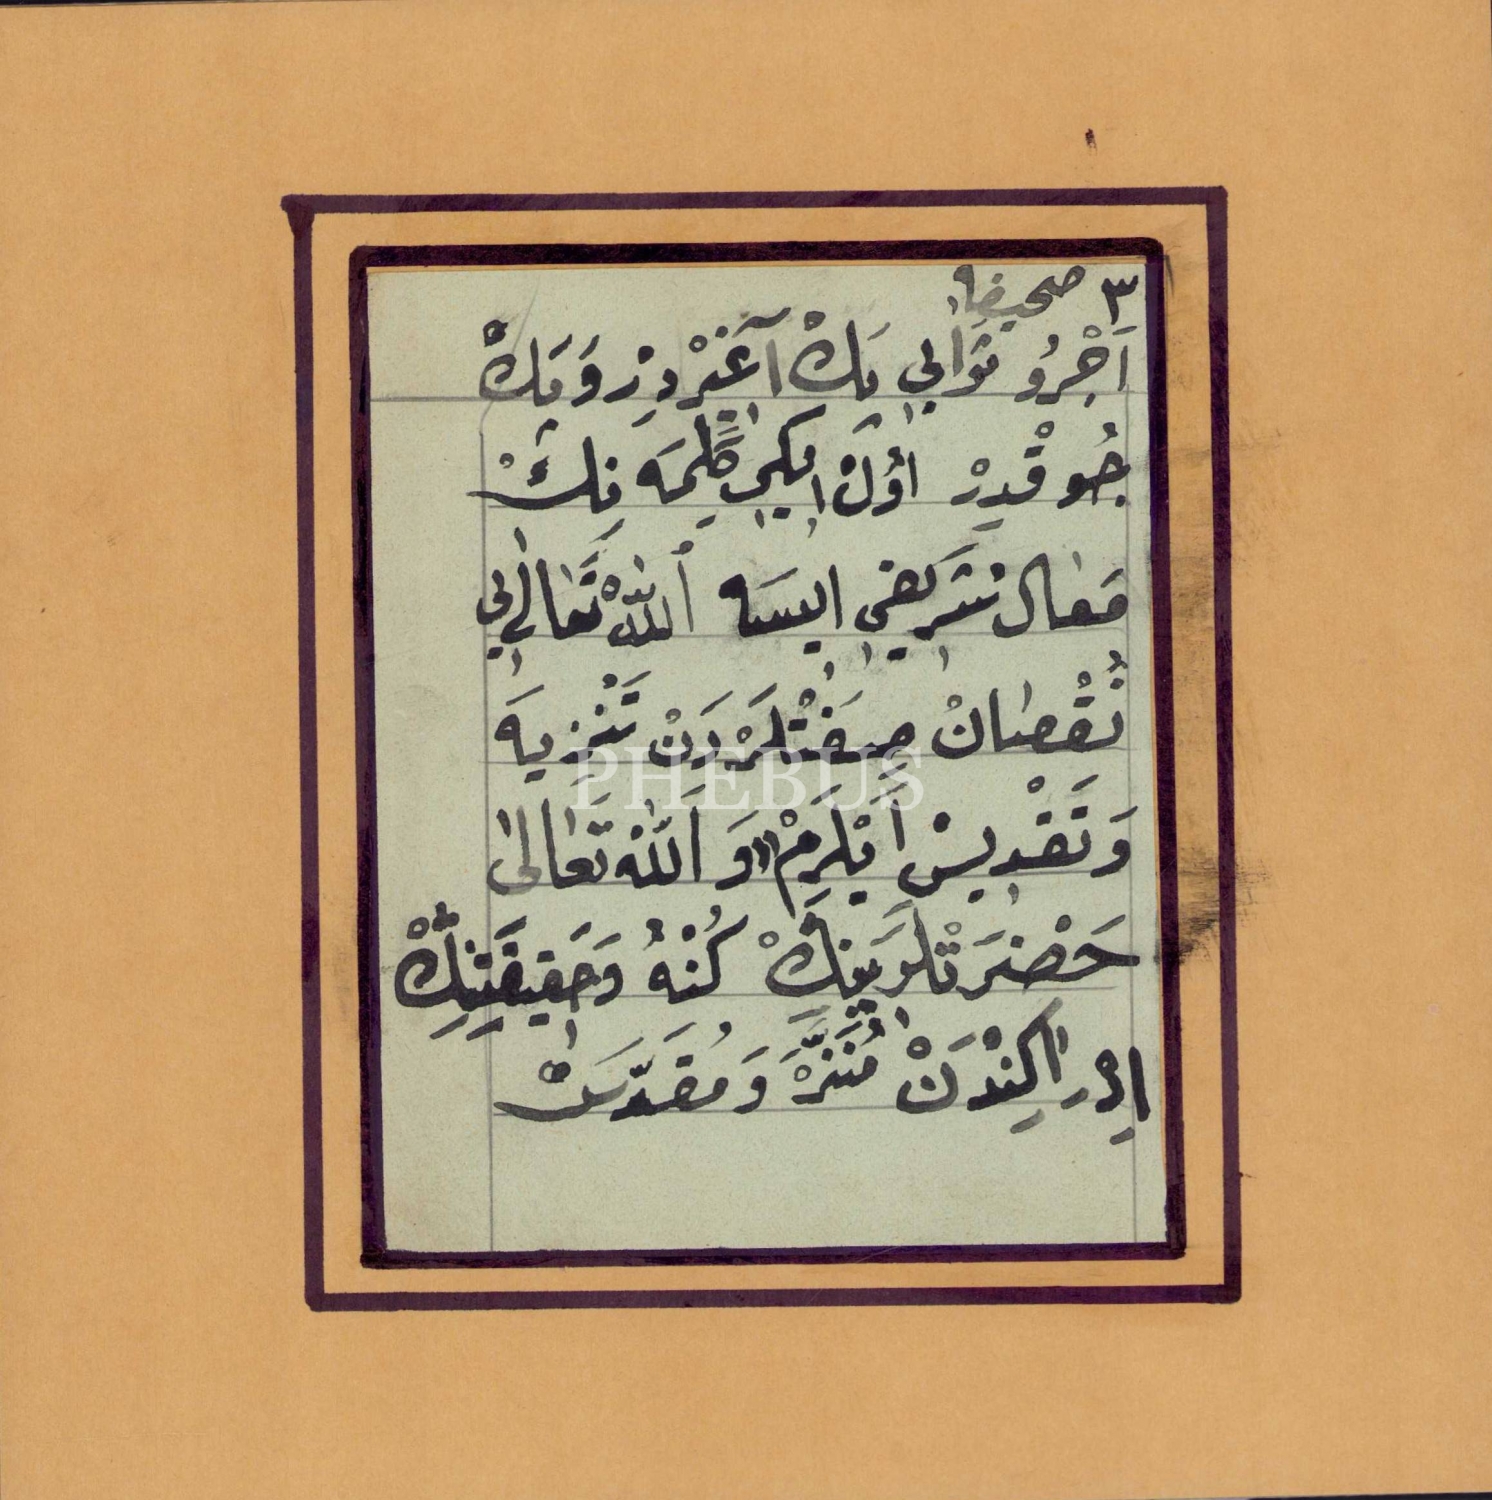 ٣ صحيفه
اَجْرُو ثَوَابِي پَكْ آغِرْدِرْ وَپَكْ
چُوقْدِرْ اُوَّلْ اِيكِي كَلِمَه نِكْ
مَعٰال شَرِيفِي ايسَه اَللّٰهْ تَعَالٰي يِي
نُقْصٰانْ صِفَتْلَرْدَنْ تَنْزِيهَ
وَتَقْدِيسْ اَيْلَرِمْ » وَ اَللّٰهْ تَعَالىٰ
حَضْرَتْلَرِينِكْ كُنْهُ وَحَقِيقَتِنِكْ
اِدْرٰاكِنْدَنْ مُنَزَّهْ وَ مُقَدَّسَتْ
PHEBUS